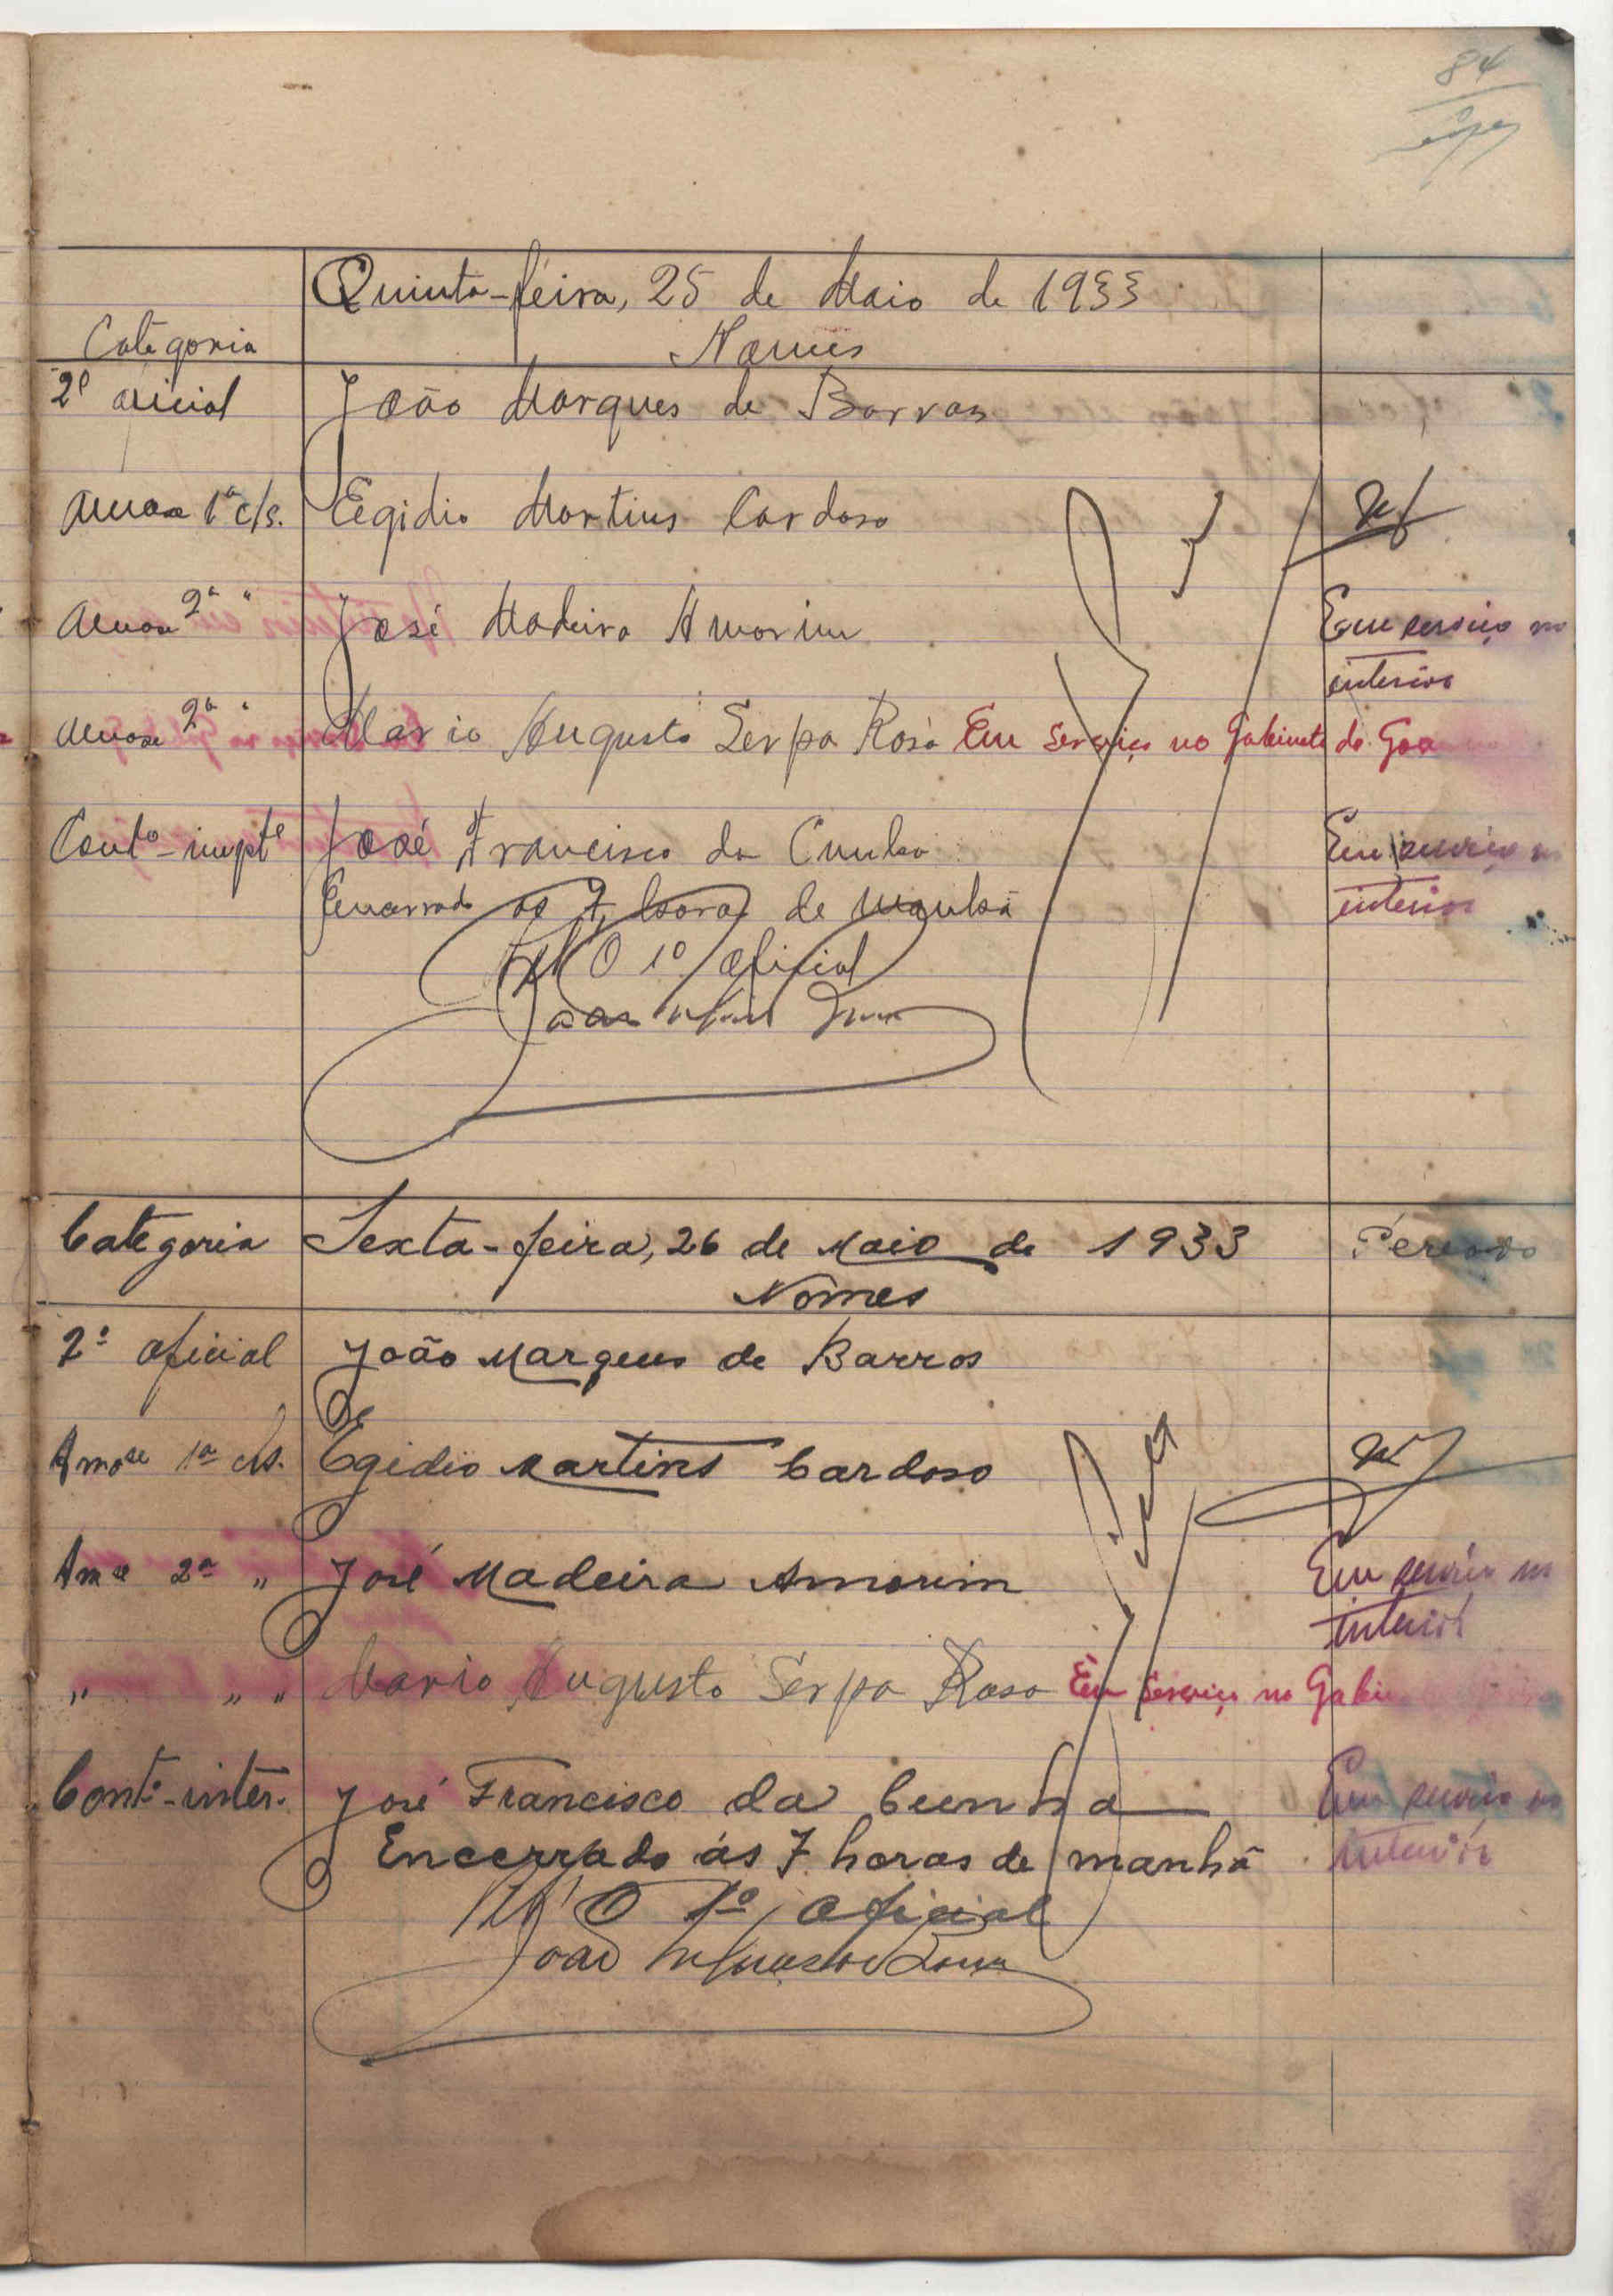 84
Quinta-feira, 25 de Maio de 1933
Categoria Nomes
2º oficial João Marques de Barros
1ª cls. Egidio Martins Cardoso
2ª " José Madeira Amorim Em serviço no
interior
2ª " Mario Augusto Serpa Rosa Em serviço no Gabinete do
José Francisco da Cunha Em serviço no
interior
Encerrado as 7 horas de manhã
O 1º oficial
Categoria Sexta-feira, 26 de Maio de 1933
Nomes
2º oficial João Marques de Barros
Amᵒˢᵉ 1ª cls. Egidio Martins Cardoso
2ª " José Madeira Amorim Em serviço no
interior
" " " Mario Augusto Serpa Rosa Em serviço no
Contº-inter. José Francisco da Cunha Em serviço no
interior
Encerrado ás 7 horas de manhã
O 1º oficial
João